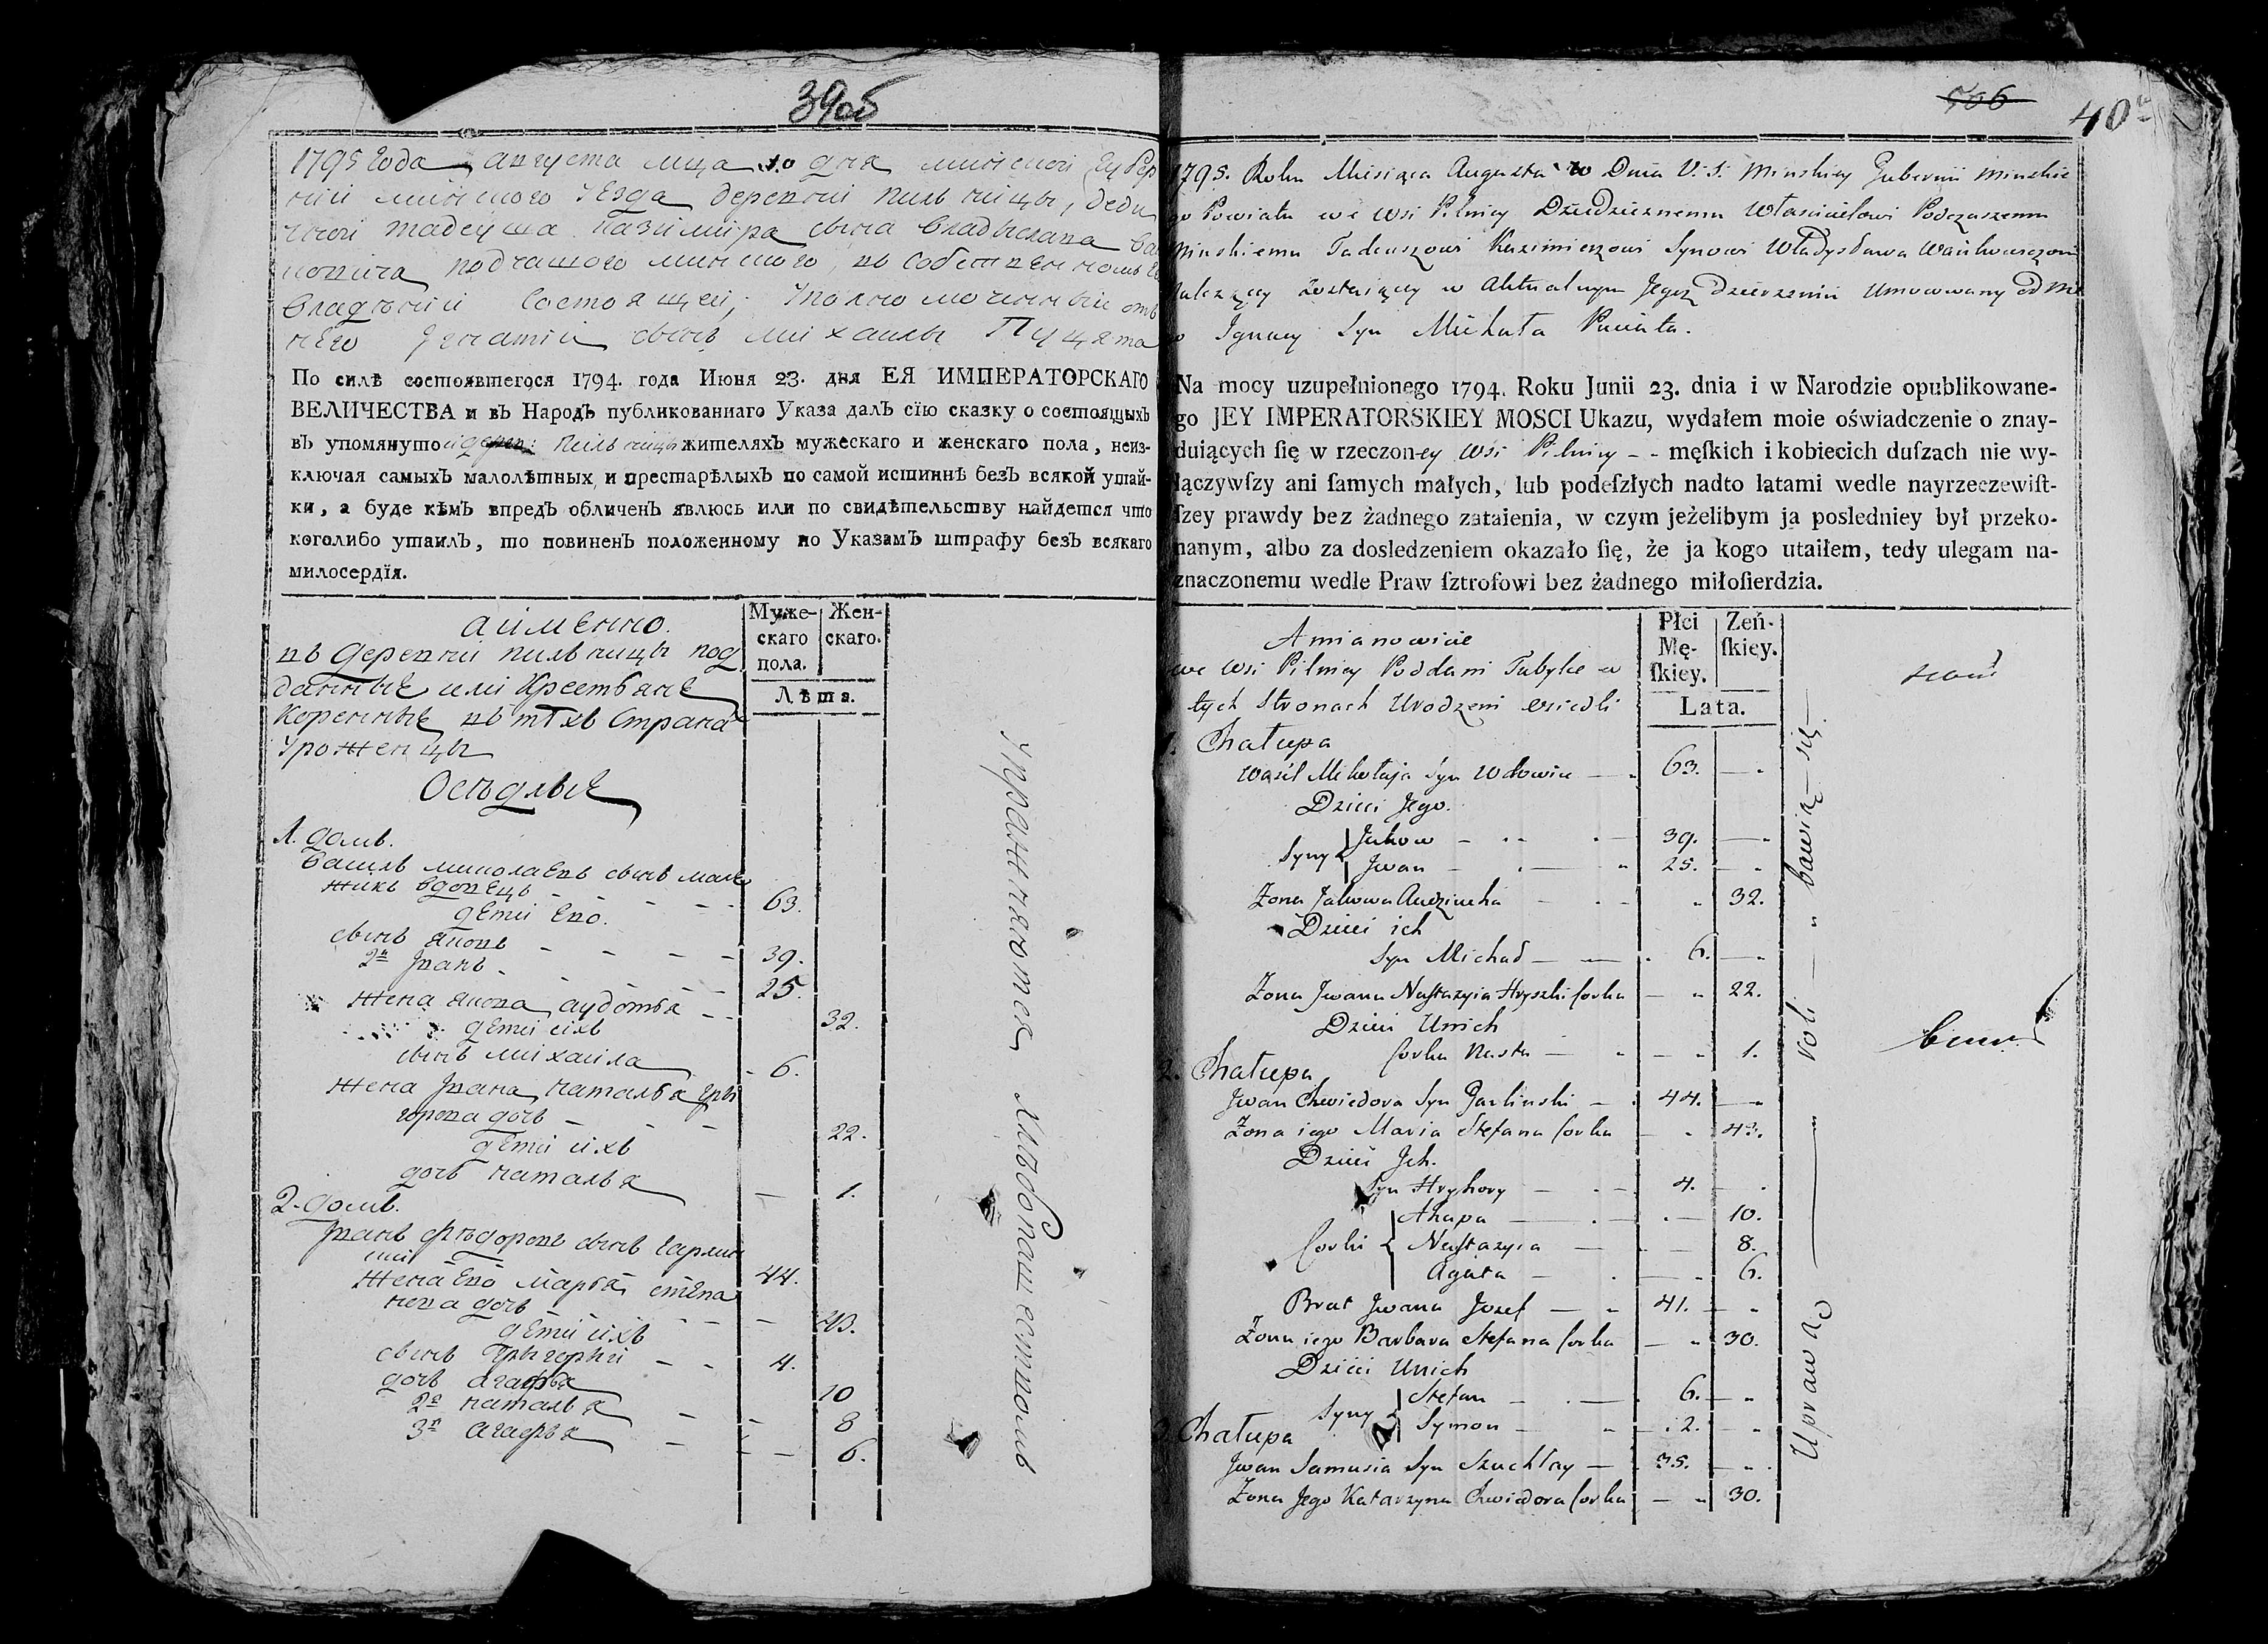 39об
1795 года августа мца 10 дня минской губер
нии минского уезда деревни пильницы, деди
чной тадеуша казимира сына владыслава
подчашого минского, въ собственномъ
владѣнии состоящей, уполномоченный отъ
него Игнатий сынъ михаилы Пуцята
По силѣ состоявшегося 1794. года Июня 23. дня ЕЯ ИМПЕРАТОРСКАГО
ВЕЛИЧЕСТВА и въ Народъ публикованнаго Указа далъ сїю сказку о состоящыхъ
въ упомянутой дерев: пильницы жителяхъ мужескаго и женскаго пола, неиз-
ключая самыхъ малолѣтных и престарѣлыхъ по самой истиннѣ безъ всякой утай-
ки, а буде кѣмъ впредъ обличенъ явлюсь или по свидѣтельству найдется что
коголибо утаилъ, то повиненъ положенному по Указамъ штрафу безъ всякаго
милосердїя.
аименно.
въ деревни пильницы под
данные или крестьяне
коренные въ тѣхъ страна
Уроженцы
Осѣдлые
Муже-
скаго
пола.
Жен-
скаго.
Лѣта.
1. домъ.
Василь миколаевъ сынъ
жикъ вдовецъ - - - 63.
дети ево.
сынъ яковъ - - - 39.
2й Иванъ - - - 25.
жена якова аудотья - - 32.
дети ихъ
сынъ михаила - 6.
жена Ивана наталья гри
горова дочь - - - 22.
дети ихъ
дочь наталья — 1.
2. домъ.
Иванъ фѣодоровъ сынъ гарлин
ский 44.
жена ево марья степа
нова дочь - - - 43.
дети ихъ
сынъ григорий - - 4.
дочь агафья 10
2я наталья - - 8
3я агафья - - - 6.
Упражняются хлебопашествомъ
506
40а
1795. Roku Miesiąca Augusta 10 Dnia V. S. Minskiey Gubernii Minskie
go Powiatu we Wsi Pilnicy Dziedzicznemu Włascicielowi Podczaszemu
Minskiemu Tadeuszowi Kazimierzowi Synowi Władysława Wańkowiczowi
należącey zostaiącey w Aktualnym Jego dzierzeniu Umocowany od nie
o Ignacy Syn Michała Puciata.
Na mocy uzupełnionego 1794. Roku Junii 23. dnia i w Narodzie opublikowane-
go JEY IMPERATORSKIEY MOSCI Ukazu, wydałem moie oświadczenie o znay-
duiących ſię w rzeczoney wsi Pilnicy - - męſkich i kobiecich duſzach nie wy-
łączywſzy ani ſamych małych, lub podeſzłych nadto latami wedle nayrzeczewiſt-
ſzey prawdy bez żadnego zataienia, w czym jeżelibym ja posledniey był przeko-
nanym, albo za dosledzeniem okazało ſię, że ja kogo utaiłem, tedy ulegam na-
znaczonemu wedle Praw ſztrofowi bez żadnego miłoſierdzia.
Amianowicie
we wsi Pilnicy Poddani Tubylce w
tych Stronach Urodzeni osiedli
Płci
Mę-
ſkiey.
Zeń-
ſkiey.
Lata.
1. Chałupa
Wasil Mikołaja Syn Wdowiec — 63. —
Dzieci Jego.
Syny { Jakow - - - 39. —
Jwan - — 25. —
Zona Jakowa Audziucha - - 32.
Dzieci ich
Syn Michał — — 6. —
Zona Jwana Nastazyia Hryszki corka — 22.
Dzieci Unich
Corka Nasta — — 1.
2. Chałupa
Jwan Chwiedora Syn Garlinski — 44. —
Zona iego Maria Stefana corka — 43.
Dzieci Jch.
Syn Hryhory — - 4. —
Corki { Ahapa — - — 10.
Nastazyia — — 8.
Agata — - — 6.
Brat Jwana Jozef — 41. —
Zona iego Barbara Stefana corka — 30.
Dzieci Unich
Syny { Stefan - — 6. —
Symon — — 2. —
3. Chałupa
Jwan Samusia Syn Szuchlay — 35. —
Zona Jego Katarzyna Chwiedora corka — 30.
Uprawą — roli — bawią — się —